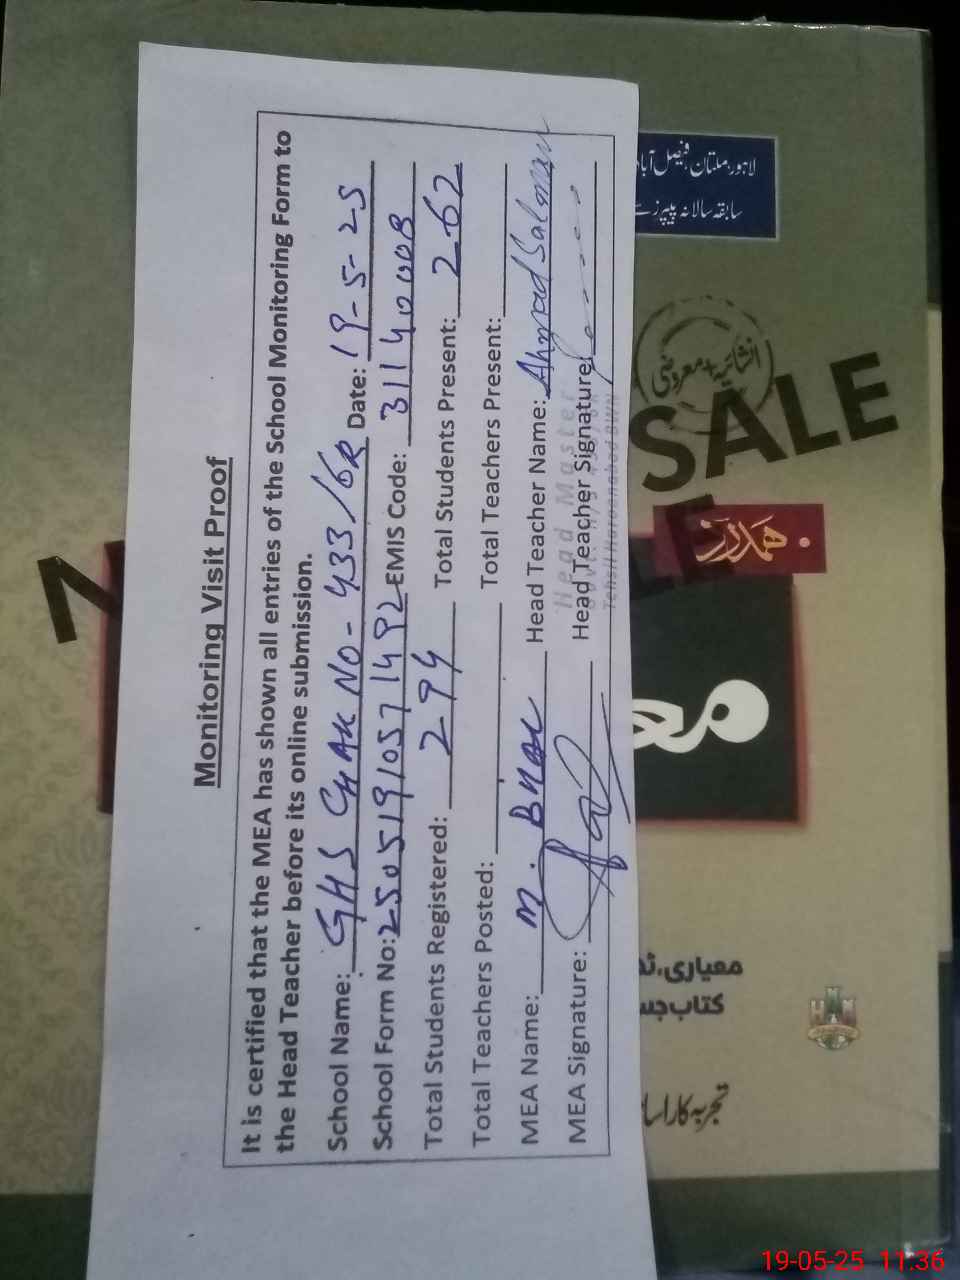 Monitoring Visit Proof
It is certified that the MEA has shown all entries of the School Monitoring Form to
the Head Teacher before its online submission.
School Name: GHS CHAK NO- 433/6R Date: 19-5-25
School Form No: 25051910571492 EMIS Code: 31140008
Total Students Registered: 294 Total Students Present: 262
Total Teachers Posted: Total Teachers Present:
MEA Name: M. Bilal Head Teacher Name: Ahmad Salman
MEA Signature: Head Teacher Signature:
Head Master
Tehsil Haroonabad BWN
لاہور، ملتان، فیصل آباد
سابقہ سالانہ پیپرز سے
انشائیہ + معروضی
SALE
ہمدرد
معیاری،
کتاب
تجربہ کار
19-05-25 11:36